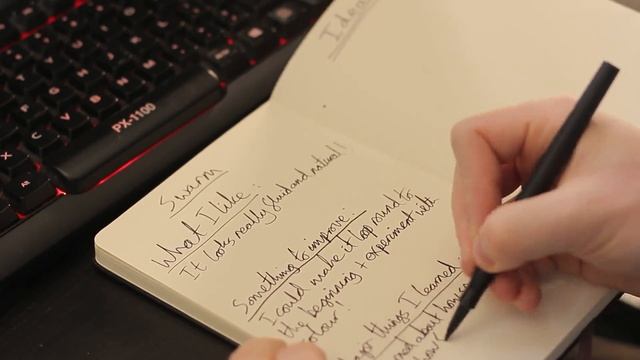 Ideas
PX-1100
Swarm
What I like:
It looks really fluid and natural!
Something to improve:
I could make it loop round to
the beginning + experiment with
colour!
things I learned:
about how